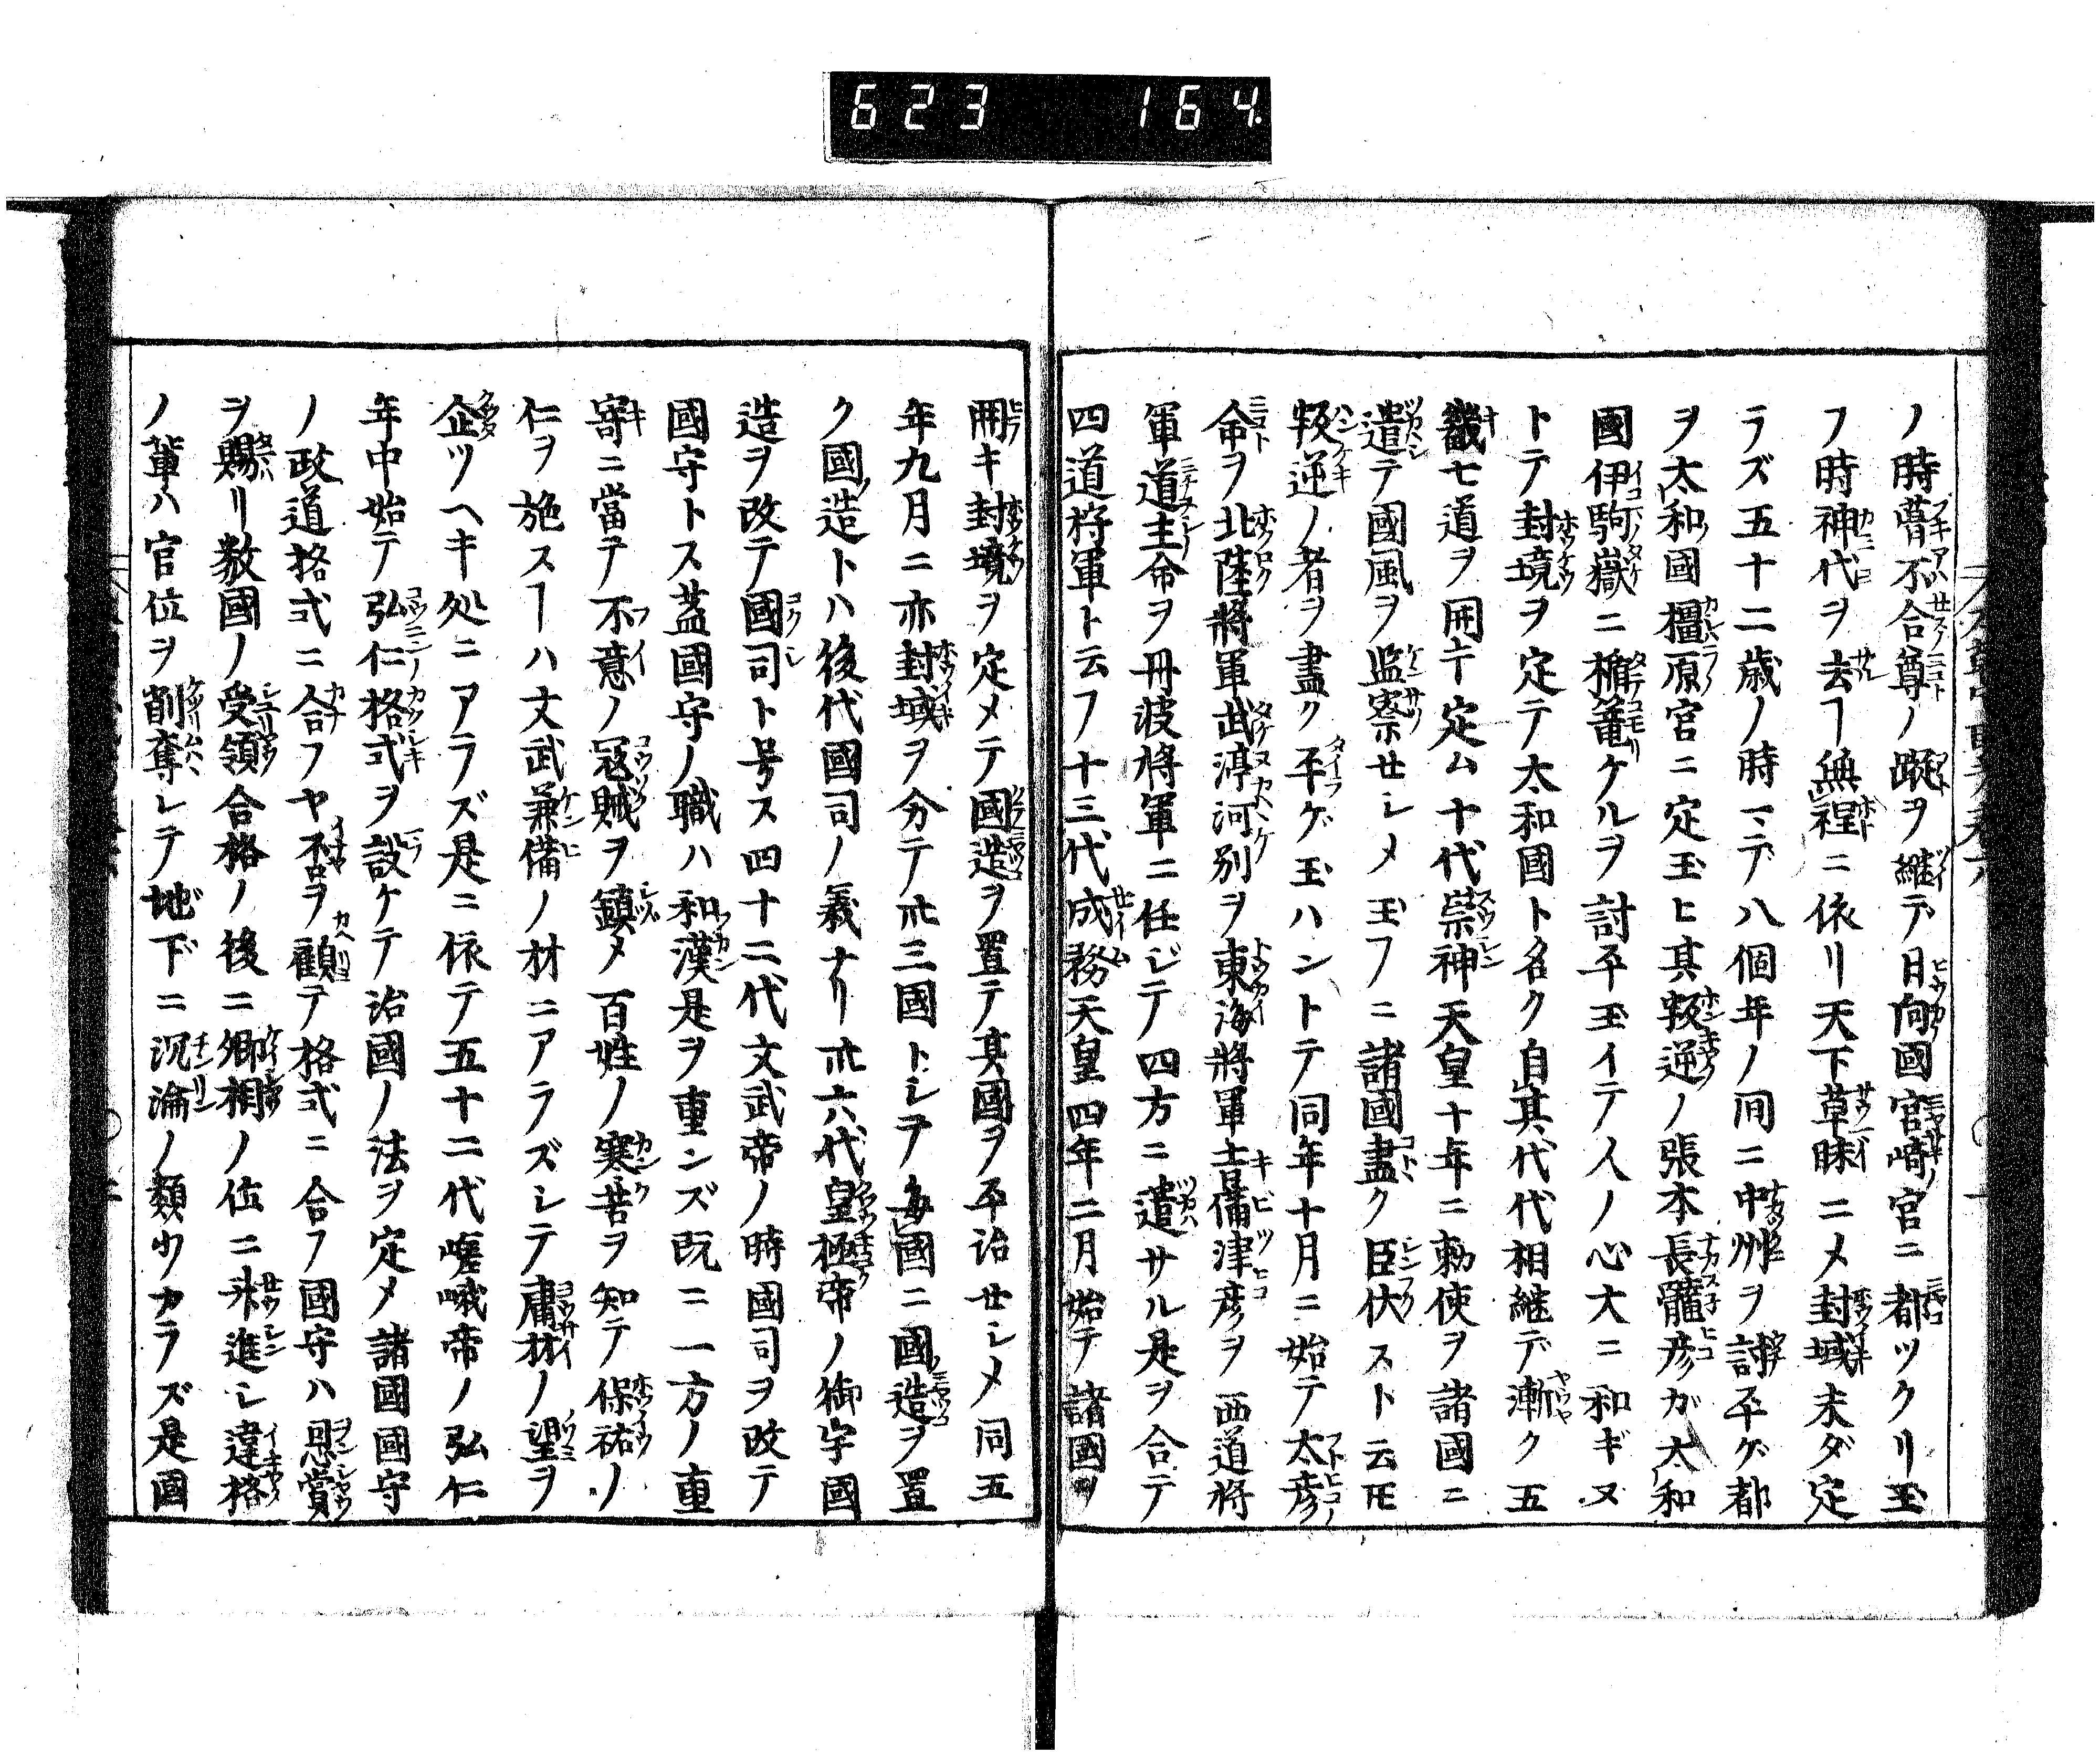 623 164.
ノ時葺不合尊ノ蹤ヲ継デ日向國宮崎宮ニ都ツクリ玉
フ時神代ヲ去ヿ無程ニ依リ天下草昧ニメ封域未ダ定
ラズ五十二歳ノ時マデ八個年ノ間ニ中州ヲ討平ゲ都
ヲ太和國橿原宮ニ定玉ヒ其叛逆ノ張本長髓彦ガ太和
國伊駒嶽ニ楯篭ケルヲ討平玉イテ人ノ心大ニ和ギヌ
トテ封境ヲ定テ太和國ト名ク自其代代相継デ漸ク五
畿七道ヲ開キ定ム十代崇神天皇十年ニ勅使ヲ諸國ニ
遣テ國風ヲ监察せシメ玉フニ諸國盡ク臣伏スト云𪜈
叛逆ノ者ヲ盡ク平ゲ玉ハントテ同年十月ニ始テ太彦
命ヲ北陸將軍武渟河别ヲ東海將軍吉備津彦ヲ西道将
軍道主命ヲ丹波将軍ニ任ジテ四方ニ遣サル是ヲ合テ
四道将軍ト云フ十三代成務天皇四年二月始テ諸國ヲ
開キ封境ヲ定メテ國造ヲ置テ其國ヲ平治せシメ同五
年九月ニ亦封域ヲ分テ卅三國トシテ毎國ニ國造ヲ置
ク國造トハ後代國司ノ義ナリ卅六代皇極帝ノ御宇國
造ヲ改テ國司ト号ス四十二代文武帝ノ時國司ヲ改テ
國守トス蓋國守ノ職ハ和漢是ヲ重ンズ既ニ一方ノ重
寄ニ當テ不意ノ冦賊ヲ鎮メ百姓ノ寒苦ヲ知テ保祐ノ
仁ヲ施スヿハ文武兼備ノ材ニアラズシテ庸材ノ望ヲ
企ツヘキ処ニアラズ是ニ依テ五十二代嵯峨帝ノ弘仁
年中始テ弘仁格式ヲ設ケテ治國ノ法ヲ定メ諸國國守
ノ政道格式ニ合フヤ否ヲ顧テ格式ニ合フ國守ハ恩賞
ヲ賜リ数國ノ受領合格ノ後ニ卿相ノ位ニ昇進シ違格
ノ輩ハ官位ヲ削奪レテ地下ニ沉淪ノ類少カラズ是國